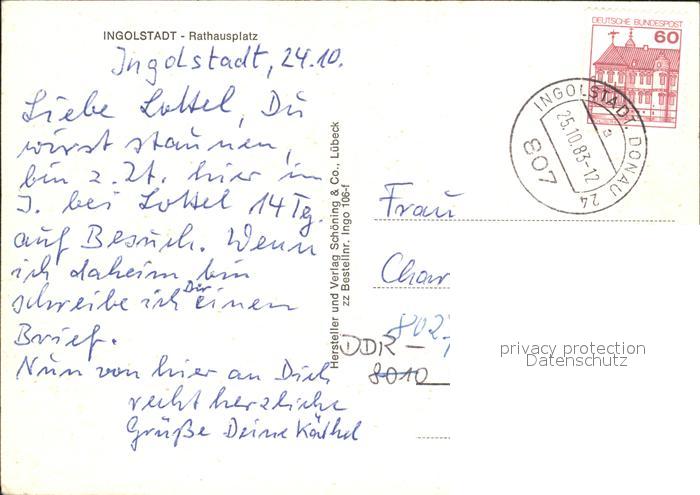 INGOLSTADT - Rathausplatz
Ingolstadt, 24.10.
Liebe Lottel, Du
wirst staunen,
bin z. Zt. hier im
I. bei Lottel 14 Tg.
auf Besuch. Wenn
ich daheim bin
schreibe ich Dir einen
Brief.
Nun von hier an Dich
recht herzliche
Grüße Deine Käthel
Hersteller und Verlag Schöning & Co., Lübeck
zz Bestellnr. Ingo 106-f
DEUTSCHE BUNDESPOST
60
INGOLSTADT, DONAU 24
a
25.10.83-12
807
Frau
Char
802
DDR -
8010
privacy protection
Datenschutz